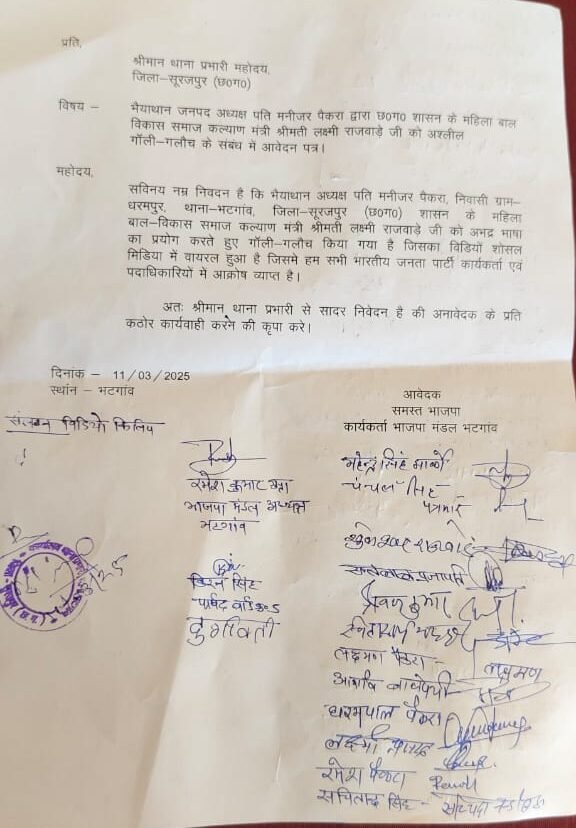 प्रति,
श्रीमान थाना प्रभारी महोदय,
जिला–सूरजपुर (छ0ग0)
विषय – भैयाथान जनपद अध्यक्ष पति मनीजर पैकरा द्वारा छ0ग0 शासन के महिला बाल
विकास समाज कल्याण मंत्री श्रीमती लक्ष्मी राजवाड़े जी को अश्लील
गॉली–गलौच के संबंध में आवेदन पत्र।
महोदय,
सविनय नम्र निवदन है कि भैयाथान अध्यक्ष पति मनीजर पैकरा, निवासी ग्राम–
धरमपुर, थाना–भटगांव, जिला–सूरजपुर (छ0ग0) शासन के महिला
बाल–विकास समाज कल्याण मंत्री श्रीमती लक्ष्मी राजवाड़े जी को अभद्र भाषा
का प्रयोग करते हुए गॉली–गलौच किया गया है जिसका विडियों शोसल
मिडिया में वायरल हुआ है जिसमे हम सभी भारतीय जनता पार्टी कार्यकर्ता एवं
पदाधिकारियों में आक्रोष व्याप्त है।
अतः श्रीमान थाना प्रभारी से सादर निवेदन है की अनावेदक के प्रति
कठोर कार्यवाही करने की कृपा करे।
दिनांक – 11/03/2025
स्थांन – भटगांव
आवेदक
समस्त भाजपा
कार्यकर्ता भाजपा मंडल भटगांव
संलग्न विडियो क्लिप
रमेश कुमार
भाजपा मंडल अध्यक्ष
भटगांव
किरन सिंह
पार्षद वार्ड क्र. 5
दुर्गावती
महेन्द्र सिंह
चंचल सिंह
प्रजापति
लक्ष्मण पैकरा - लक्ष्मण
धरमपाल पैकरा
लक्ष्मी
रमेश पैकरा
सिंह -